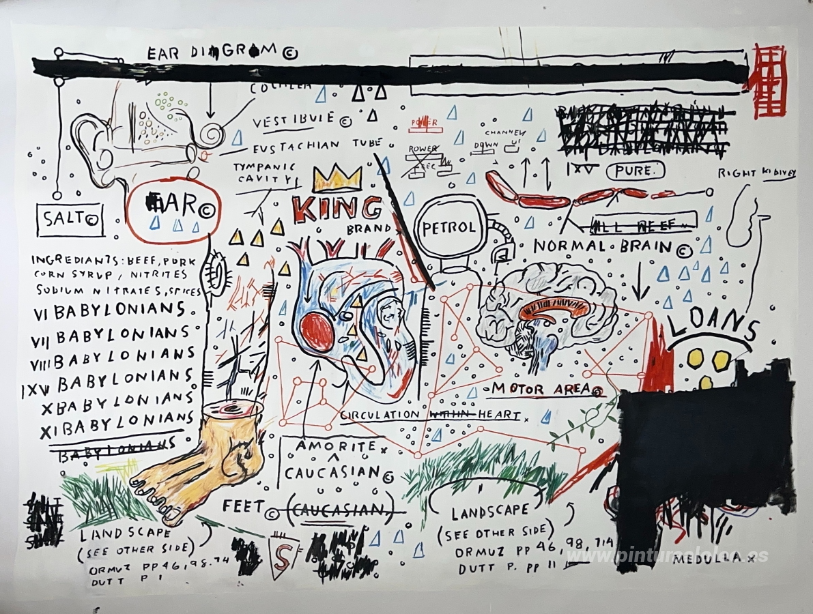 EAR DIAGRAM ©
VESTIBULE ©
EUSTACHIAN TUBE
TYMPANIC
CAVITY
POWER
POWER
CHANNEL
DOWN
IXV PURE.
RIGHT KIDNEY
SALT ©
EAR ©
KING
BRAND
PETROL
ALL BEEF
NORMAL BRAIN ©
INGREDIANTS: BEEF, PORK
CORN SYRUP, NITRITES
SODIUM NITRATES, SPICES
VI BABYLONIANS.
VII BABYLONIANS.
VIII BABYLONIANS.
IXV BABYLONIANS.
X BABYLONIANS.
XI BABYLONIANS
BABYLONIANS
LOANS
MOTOR AREA ©
CIRCULATION WITHIN HEART.
AMORITE x
CAUCASIAN ©
FEET © (CAUCASIAN)
LANDSCAPE
(SEE OTHER SIDE)
ORMUZ PP 46, 98, 74
DUTT P 1
S
LANDSCAPE
(SEE OTHER SIDE)
ORMUZ PP 46, 98, 714
DUTT P. PP 11
MEDULLA. x